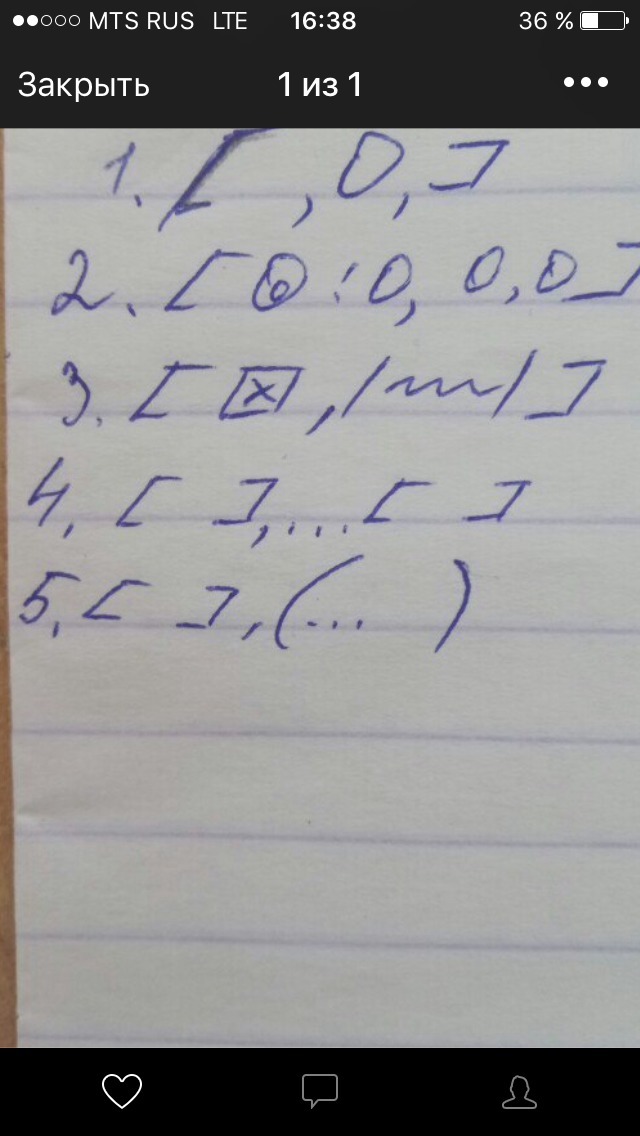 MTS RUS LTE 16:38 36 %
Закрыть 1 из 1 •••
1. [ , O, ]
2. [ ⊙ : O, O, O ]
3. [ ☒ , |~~~| ]
4. [ ], ... [ ]
5. [ ], (... )